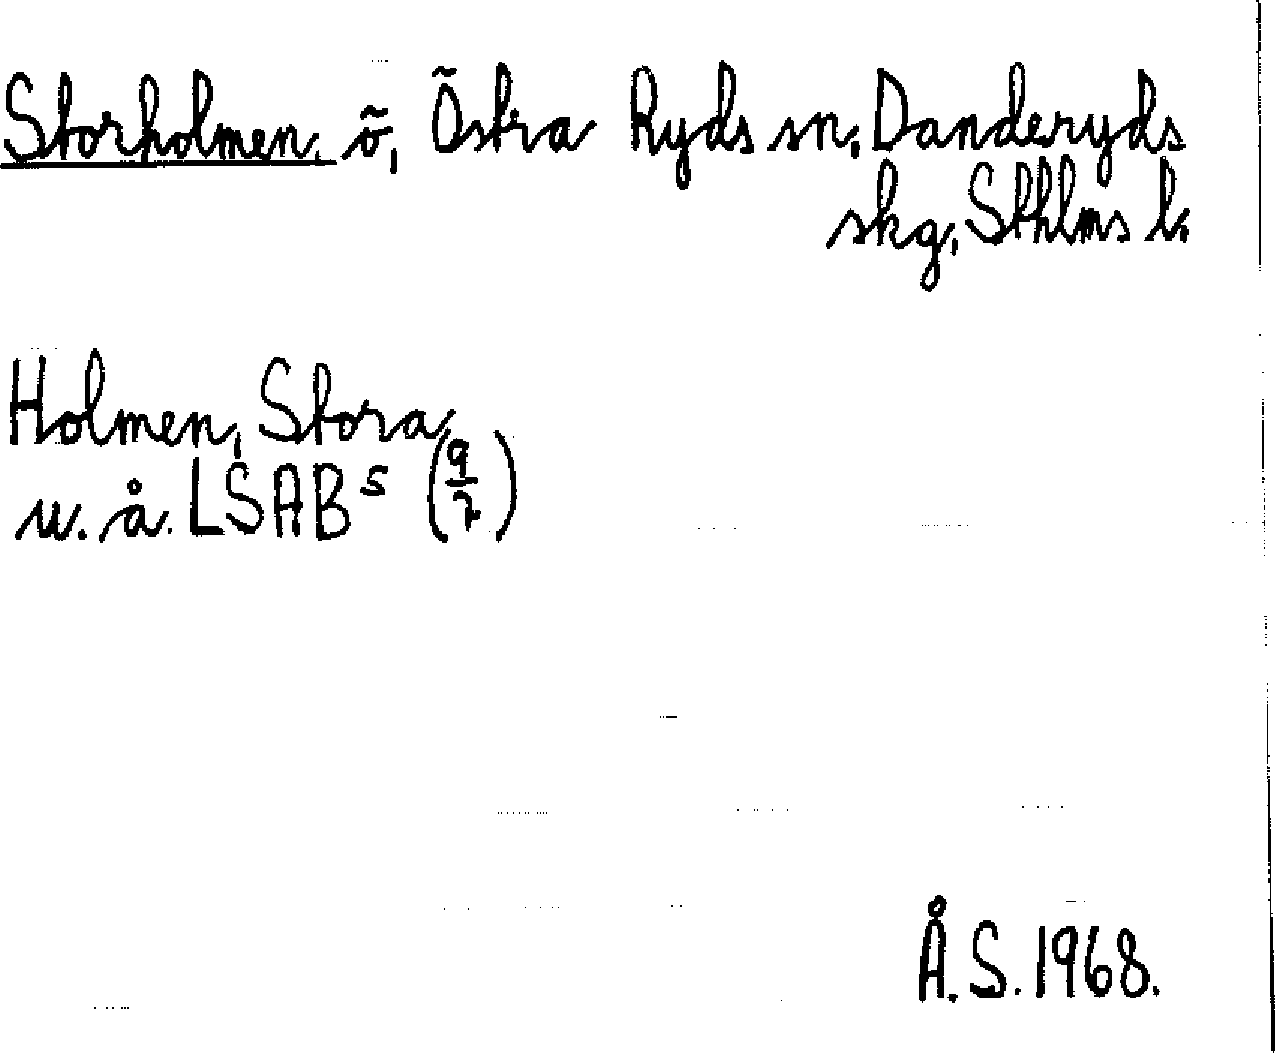 Storholmen. ö, Östra Ryds sn, Danderyds
skg, Sthlms l.
Holmen, Stora,
u. å. LSAB⁵ (9/2)
Å.S. 1968.